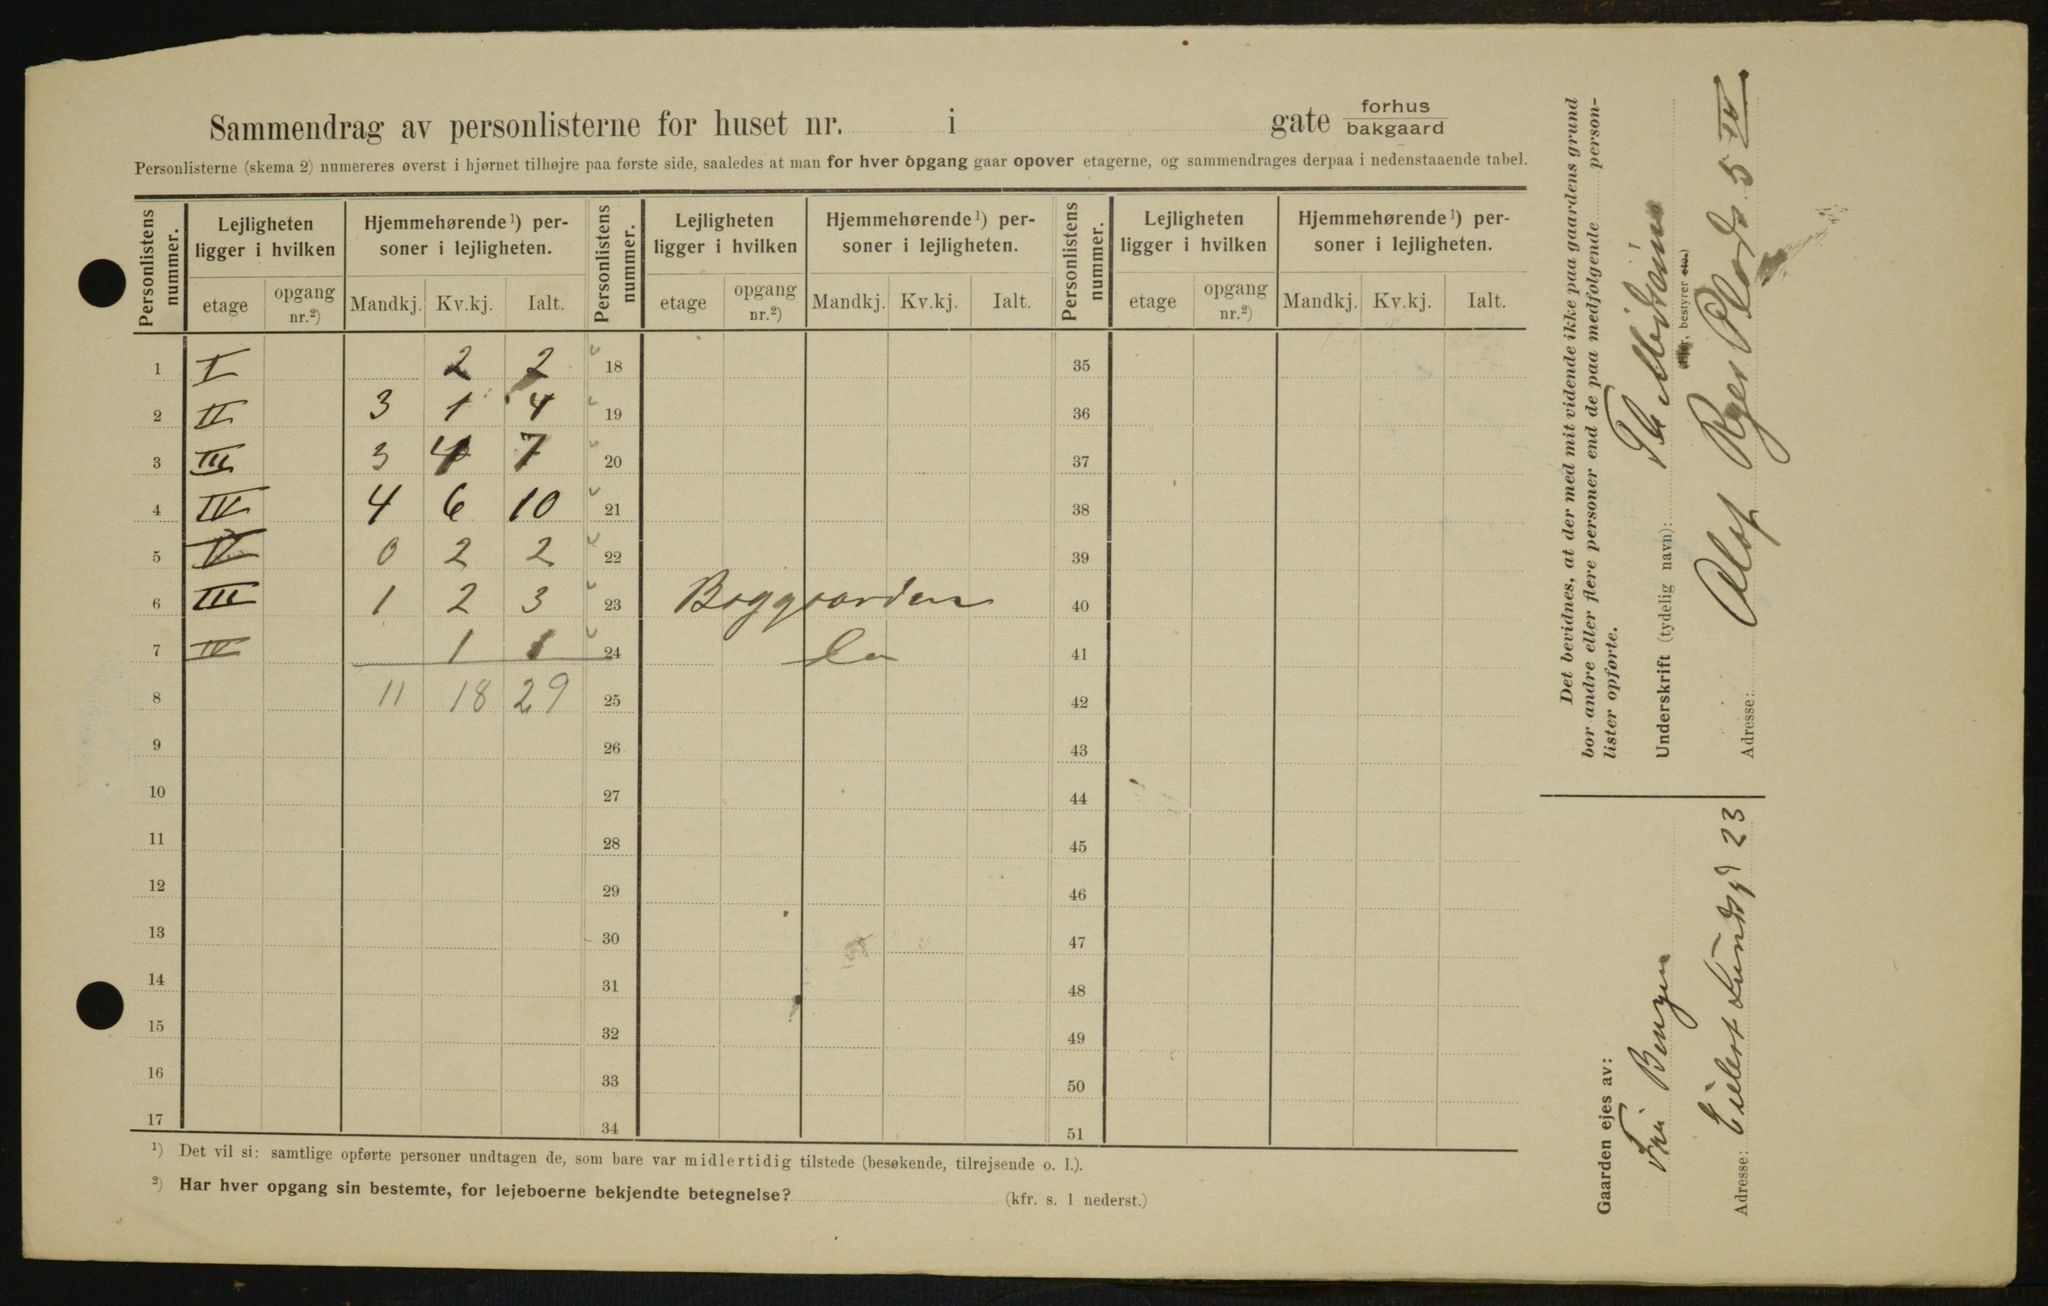 Sammendrag av personlisterne for huset nr. i gate forhus bakgaard
Personlisterne (skema 2) numereres øverst i hjørnet tilhøjre paa første side, saaledes at man for hver opgang gaar opover etagerne, og sammendrages derpaa i nedenstaaende tabel.
Personlistens nummer. Lejligheten ligger i hvilken Hjemmehørende¹) personer i lejligheten. Personlistens nummer. Lejligheten ligger i hvilken Hjemmehørende¹) personer i lejligheten. Personlistens nummer. Lejligheten ligger i hvilken Hjemmehørende¹) personer i lejligheten.
etage opgang nr.²) Mandkj. Kv.kj. Ialt. etage opgang nr.²) Mandkj. Kv.kj. Ialt. etage opgang nr.²) Mandkj. Kv.kj. Ialt.
1 I 2 2 18 35
2 II 3 1 4 19 36
3 III 3 4 7 20 37
4 IV 4 6 10 21 38
5 V 0 2 2 22 39
6 III 1 2 3 23 Baggaarden 40
7 IV 1 1 24 do 41
8 11 18 29 25 42
9 26 43
10 27 44
11 28 45
12 29 46
13 30 47
14 31 48
15 32 49
16 33 50
17 34 51
¹) Det vil si: samtlige opførte personer undtagen de, som bare var midlertidig tilstede (besøkende, tilrejsende o. l.).
²) Har hver opgang sin bestemte, for lejeboerne bekjendte betegnelse? (kfr. s. 1 nederst.)
Det bevidnes, at der med mit vidende ikke paa gaardens grund
bor andre eller flere personer end de paa medfølgende person-
lister opførte.
Underskrift (tydelig navn):
bestyrer etc.)
Adresse: Olaf Ryes Plads 5 IV
Gaarden ejes av:
Bengen
Adresse: Eilert Sundsgd 23